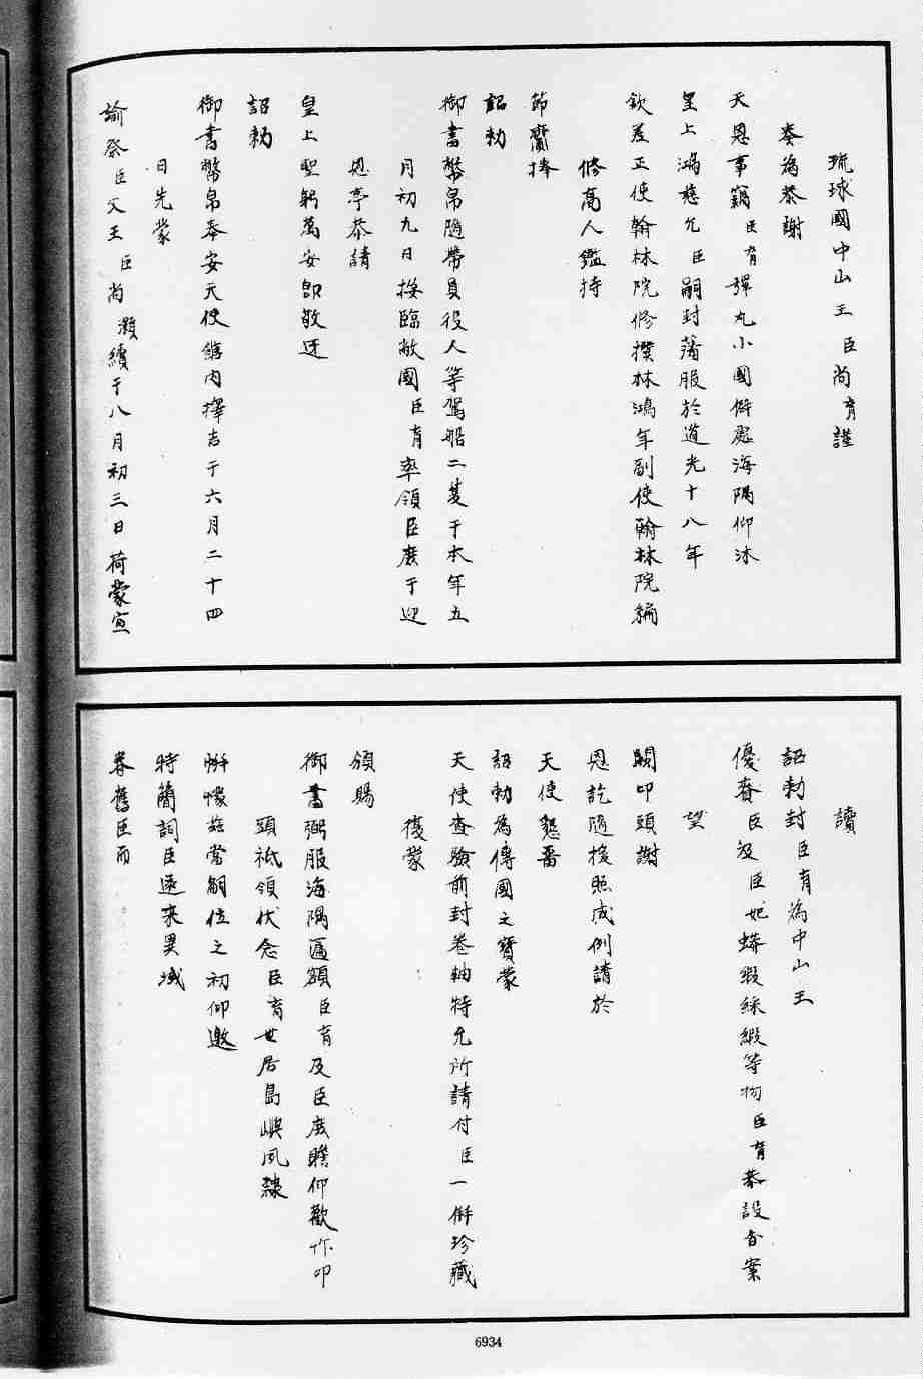 琉球國中山王臣尚育謹
奏為恭謝
天恩事竊臣育彈丸小國僻處海隅仰沐
皇上鴻慈允臣嗣封藩服於道光十八年
欽差正使翰林院修撰林鴻年副使翰林院編
修高人鑑持
節齎捧
詔勅
御書幣帛隨帶員役人等駕船二隻于本年五
月初九日按臨敝國臣育率領臣庶于迎
恩亭恭請
皇上聖躬萬安即敬迓
詔勅
御書幣帛奉安天使館內擇吉于六月二十四
日先蒙
諭祭臣父王臣尚灝續于八月初三日荷蒙宣
讀
詔勅封臣育為中山王
優賚臣及臣妃蟒緞綵緞等物臣育恭設香案
望
闕叩頭謝
恩訖隨援照成例請於
天使懇留
詔勅為傳國之寶蒙
天使查驗前封卷軸特允所請付臣一併珍藏
復蒙
頒賜
御書弼服海隅匾額臣育及臣庶瞻仰歡忭叩
頭祗領伏念臣育世居島嶼夙隸
帡幪茲當嗣位之初仰邀
特簡詞臣遠來異域
眷舊臣而
6934